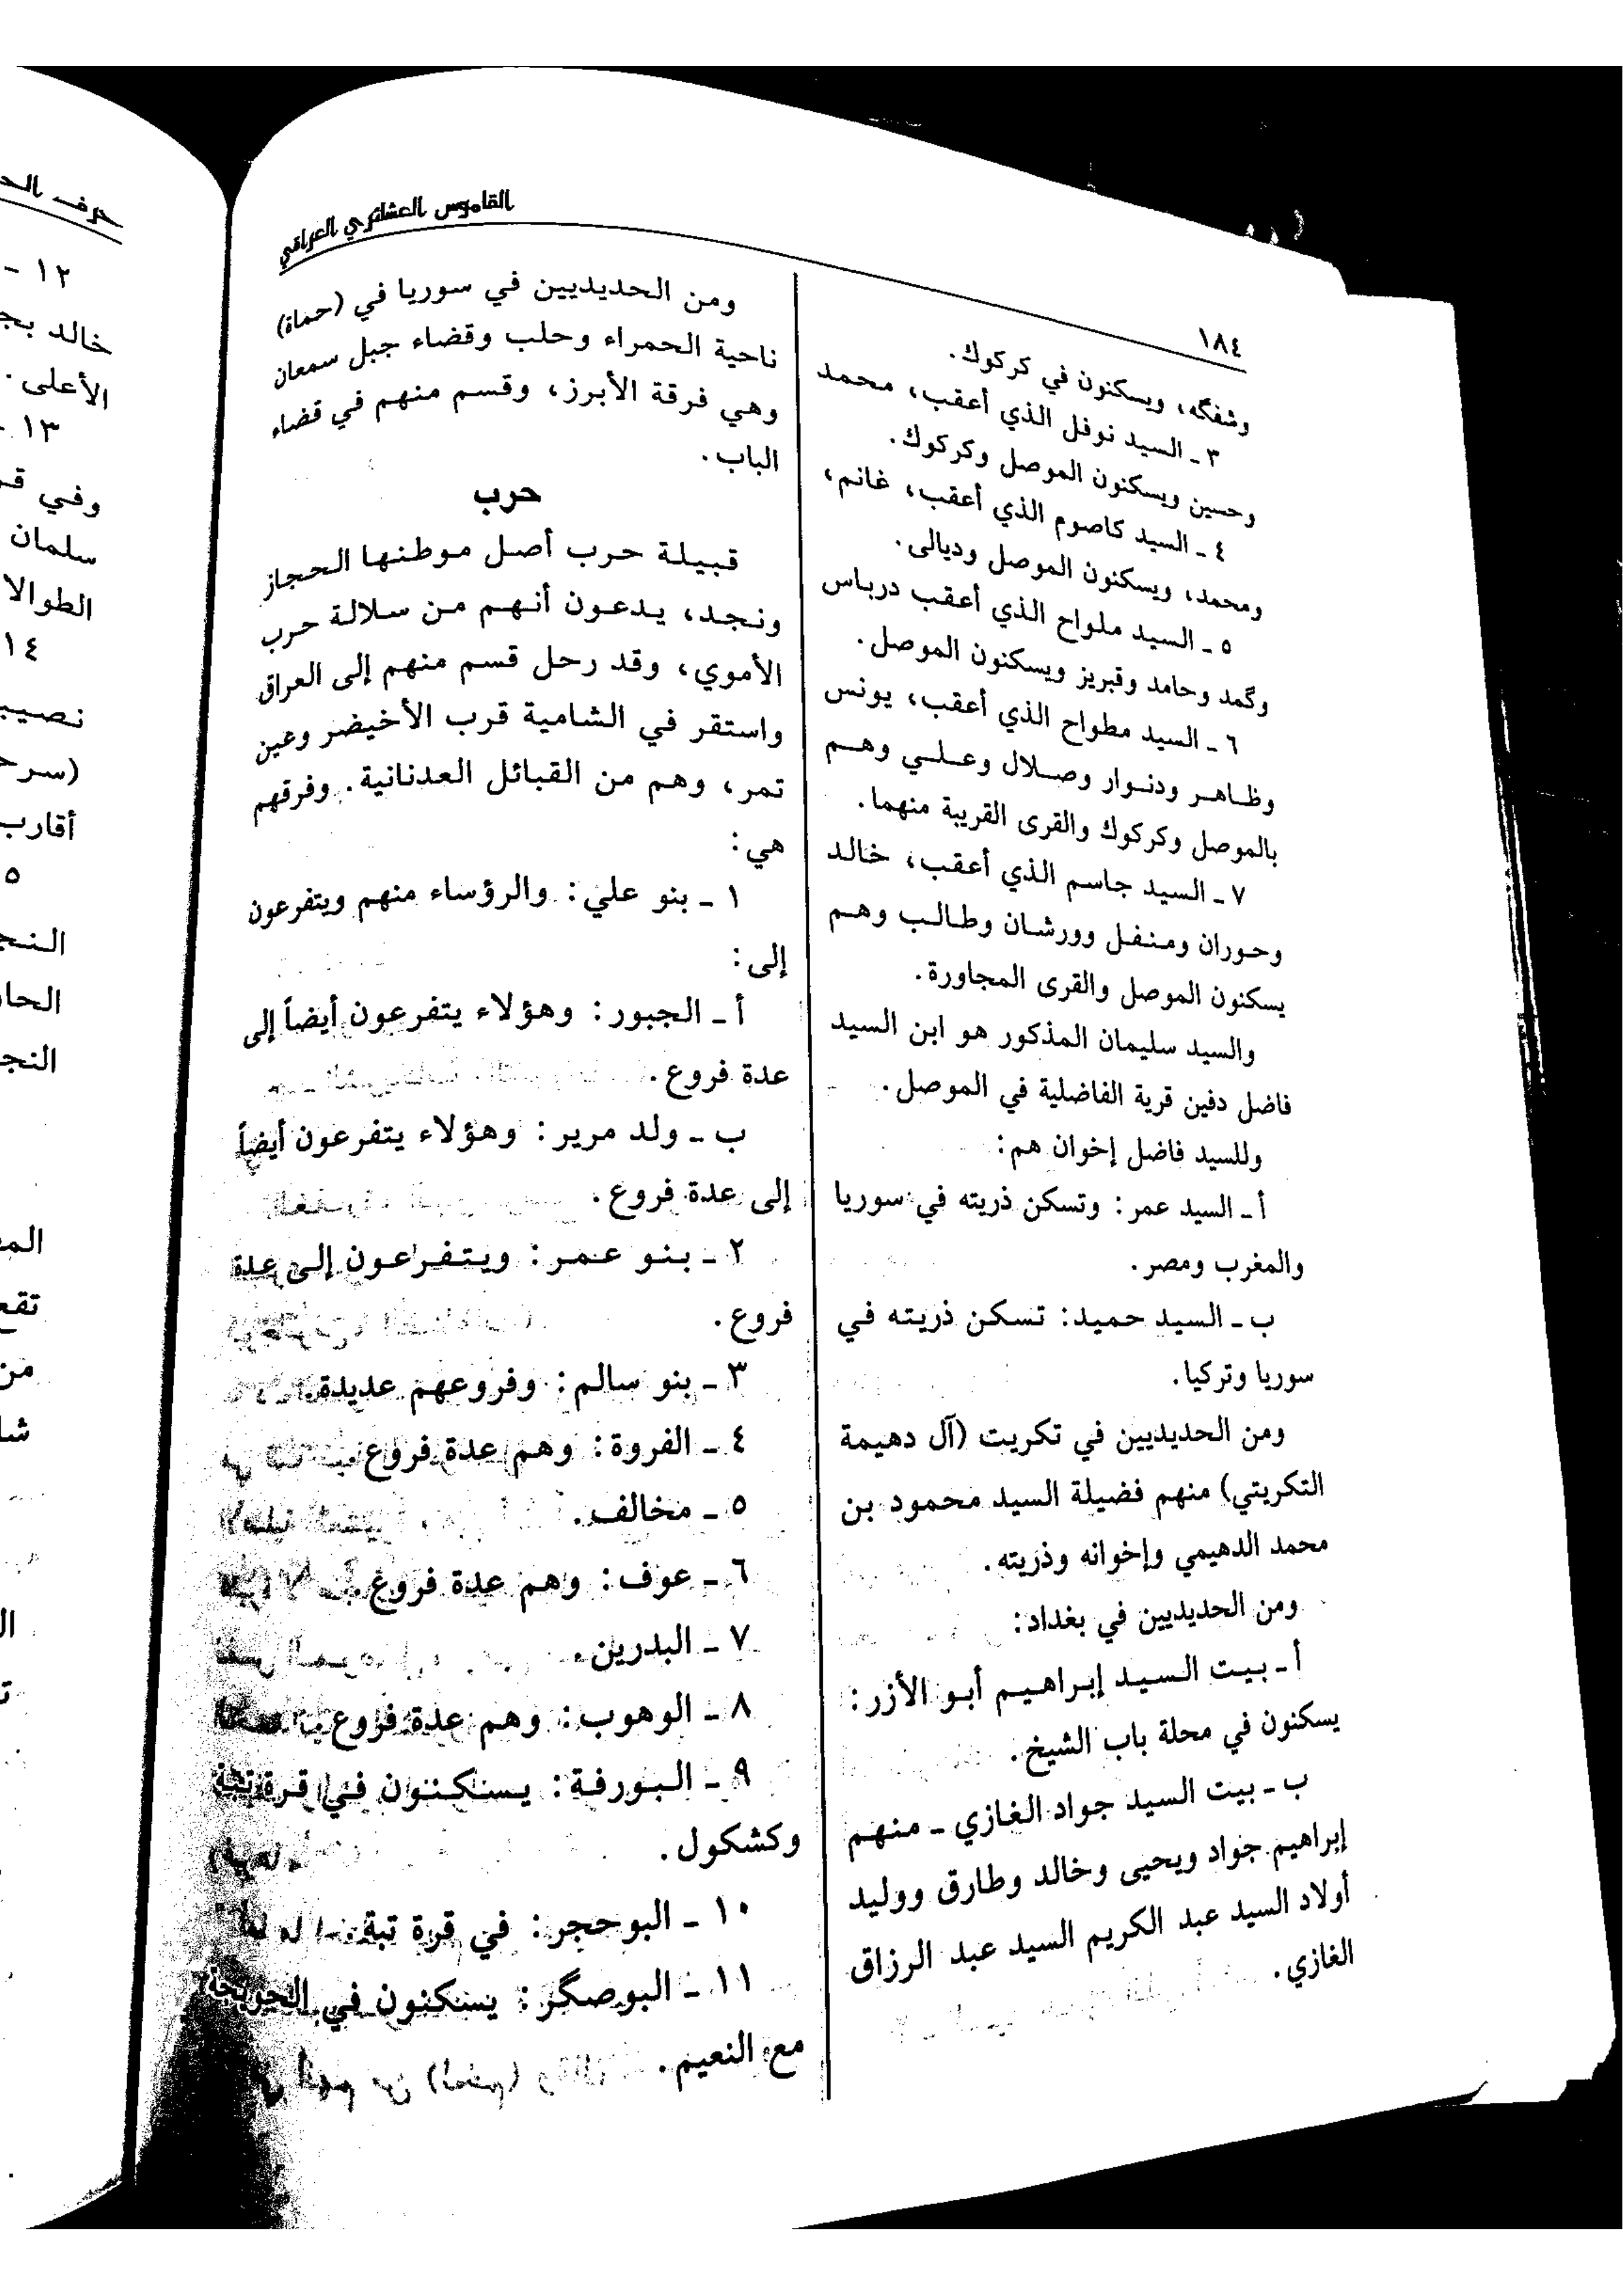 ١٨٤
القاموس العشائري العراقي
وشفگه، ويسكنون في كركوك.
٣ ـ السيد نوفل الذي أعقب، محمد
وحسين ويسكنون الموصل وكركوك.
٤ ـ السيد كاصوم الذي أعقب، غانم،
ومحمد، ويسكنون الموصل وديالى.
٥ ـ السيد ملواح الذي أعقب درباس
وگمد وحامد وقبريز ويسكنون الموصل.
٦ ـ السيد مطواح الذي أعقب، يونس
وظاهر ودنوار وصلال وعلي وهم
بالموصل وكركوك والقرى القريبة منهما.
٧ ـ السيد جاسم الذي أعقب، خالد
وحوران ومنفل وورشان وطالب وهم
يسكنون الموصل والقرى المجاورة.
والسيد سليمان المذكور هو ابن السيد
فاضل دفين قرية الفاضلية في الموصل.
وللسيد فاضل إخوان هم:
أ ـ السيد عمر: وتسكن ذريته في سوريا
والمغرب ومصر.
ب ـ السيد حميد: تسكن ذريته في
سوريا وتركيا.
ومن الحديديين في تكريت (آل دهيمة
التكريتي) منهم فضيلة السيد محمود بن
محمد الدهيمي وإخوانه وذريته.
ومن الحديديين في بغداد:
أ ـ بيت السيد إبراهيم أبو الأزر:
يسكنون في محلة باب الشيخ.
ب ـ بيت السيد جواد الغازي ـ منهم
إبراهيم جواد ويحيى وخالد وطارق ووليد
أولاد السيد عبد الكريم السيد عبد الرزاق
الغازي.
ومن الحديديين في سوريا في (حماة)
ناحية الحمراء وحلب وقضاء جبل سمعان
وهي فرقة الأبرز، وقسم منهم في قضاء
الباب.
حرب
قبيلة حرب أصل موطنها الحجاز
ونجد، يدعون أنهم من سلالة حرب
الأموي، وقد رحل قسم منهم إلى العراق
واستقر في الشامية قرب الأخيضر وعين
تمر، وهم من القبائل العدنانية. وفرقهم
هي:
١ ـ بنو علي: والرؤساء منهم ويتفرعون
إلى:
أ ـ الجبور: وهؤلاء يتفرعون أيضاً إلى
عدة فروع.
ب ـ ولد مرير: وهؤلاء يتفرعون أيضاً
إلى عدة فروع.
٢ ـ بنو عمر: ويتفرعون إلى عدة
فروع.
٣ ـ بنو سالم: وفروعهم عديدة.
٤ ـ الفروة: وهم عدة فروع.
٥ ـ مخالف.
٦ ـ عوف: وهم عدة فروع.
٧ ـ البدرين.
٨ ـ الوهوب: وهم عدة فروع
٩ ـ البورفة: يسكنون في قرة تبة
وكشكول.
١٠ ـ البوحجر: في قرة تبة
١١ ـ البوصگر: يسكنون في الحويجة
مع النعيم.
١٢ -
الأعلى.
١٣
سلمان
١٤
أقارب